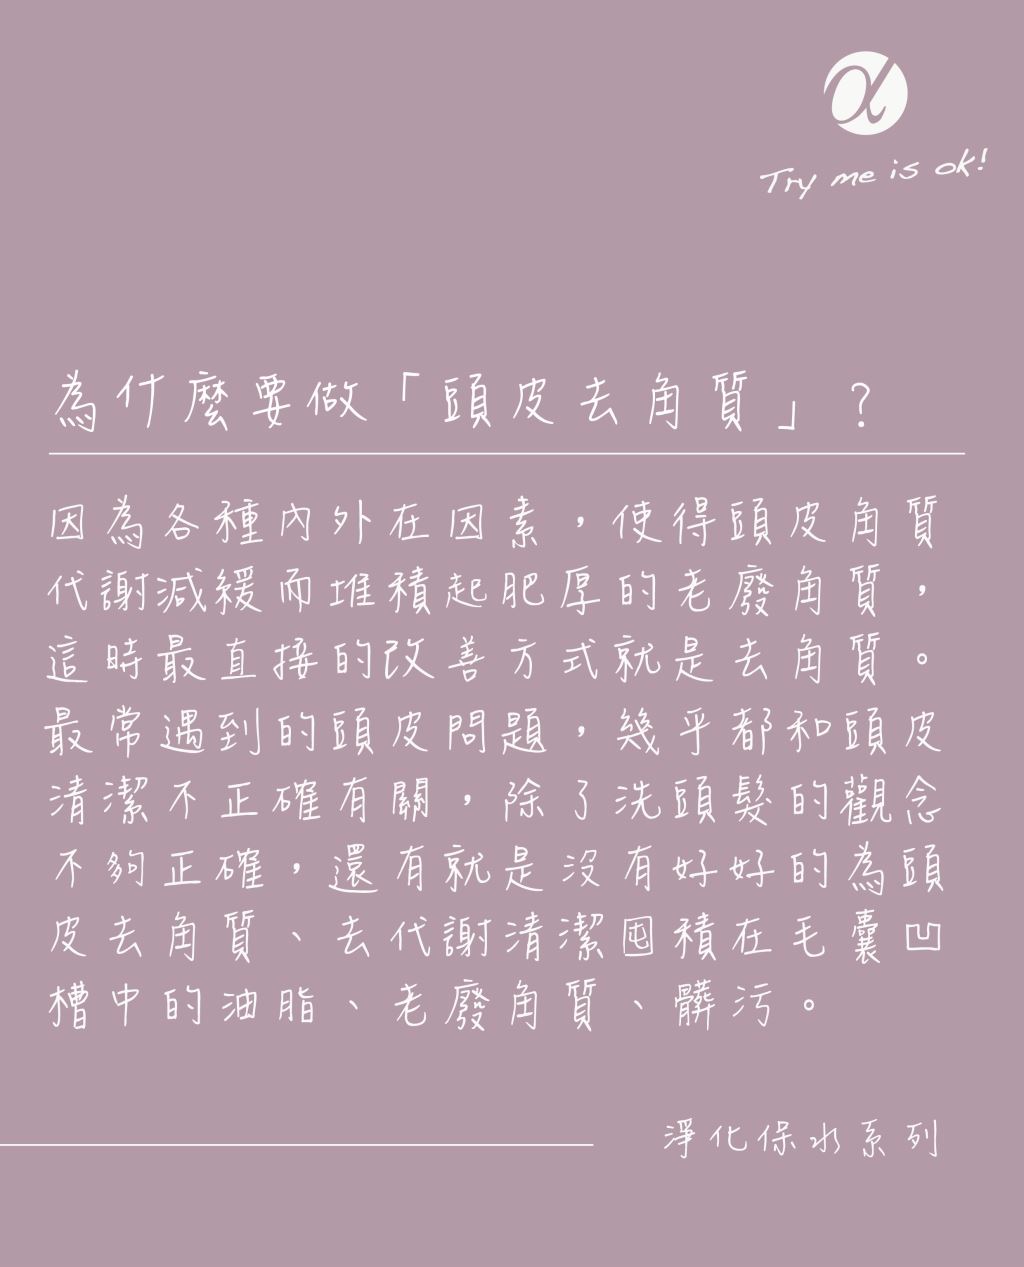 α
Try me is ok!
為什麼要做「頭皮去角質」？
因為各種內外在因素，使得頭皮角質
代謝減緩而堆積起肥厚的老廢角質，
這時最直接的改善方式就是去角質。
最常遇到的頭皮問題，幾乎都和頭皮
清潔不正確有關，除了洗頭髮的觀念
不夠正確，還有就是沒有好好的為頭
皮去角質、去代謝清潔囤積在毛囊凹
槽中的油脂、老廢角質、髒污。
淨化保水系列